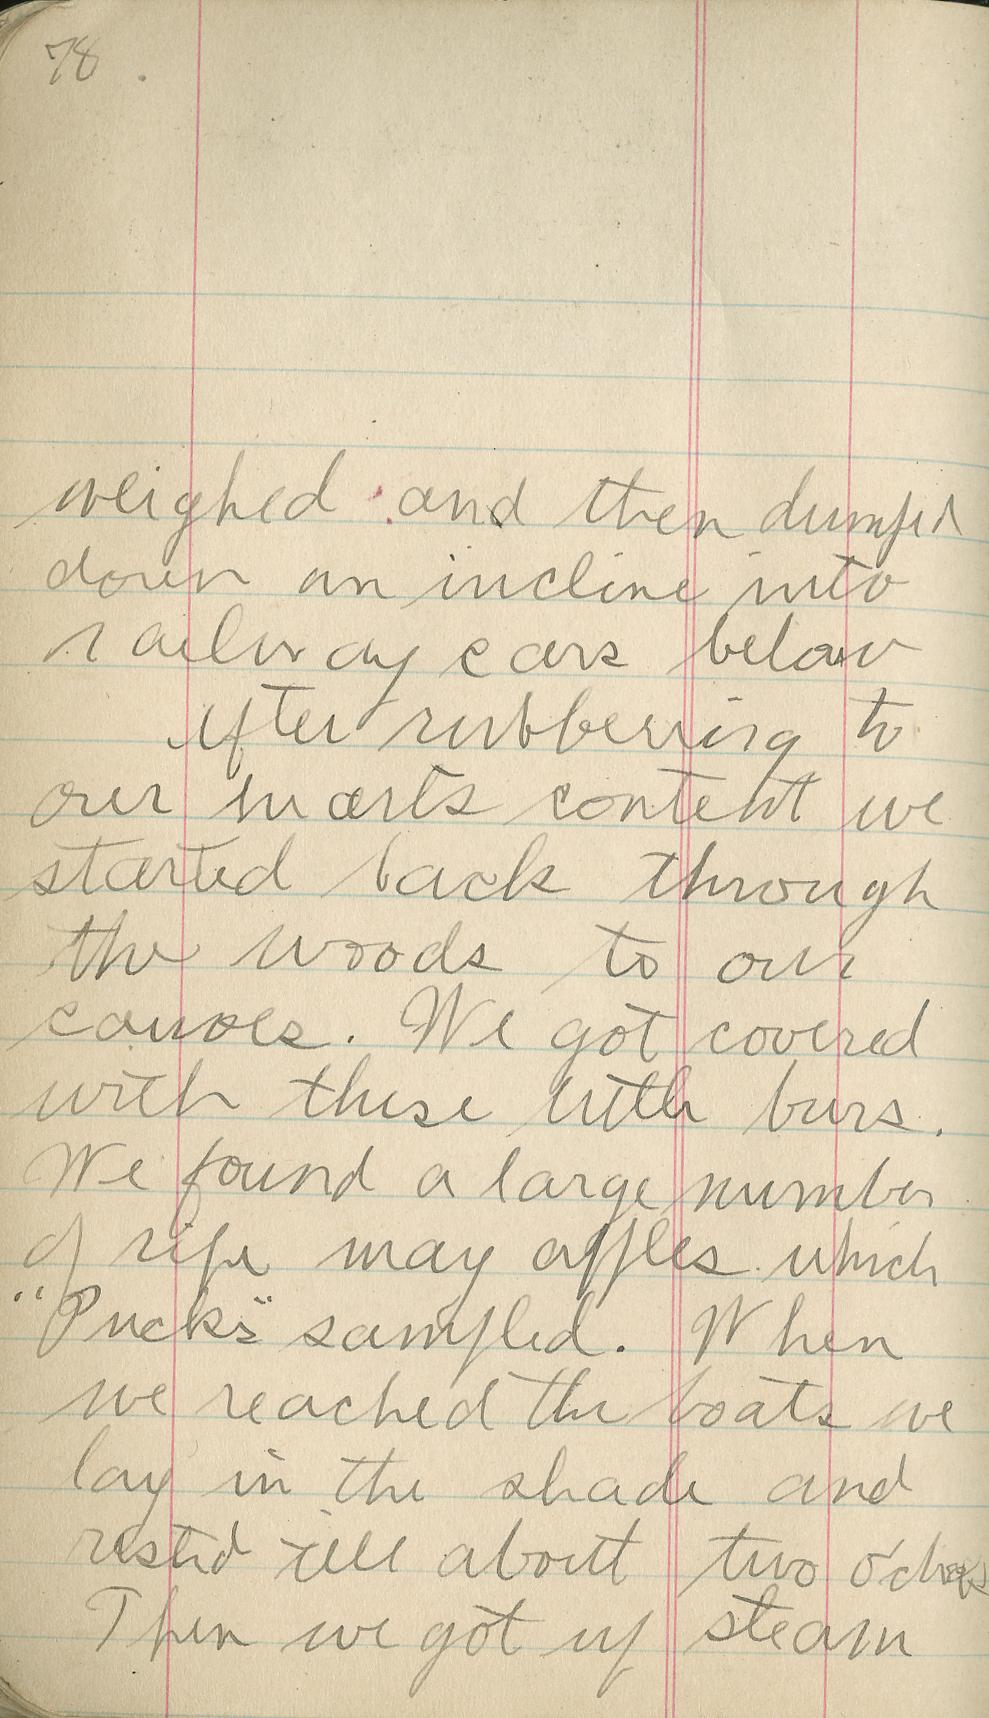 78.
weighed and then dumped
down an incline into
railway cars below
After rubberring to
our hearts content we
started back through
the woods to our
canoes. We got covered
with these little burs.
We found a large number
of ripe may apples which
"Pucks" sampled. When
we reached the boats we
lay in the shade and
rested till about two o'clock
Then we got up steam